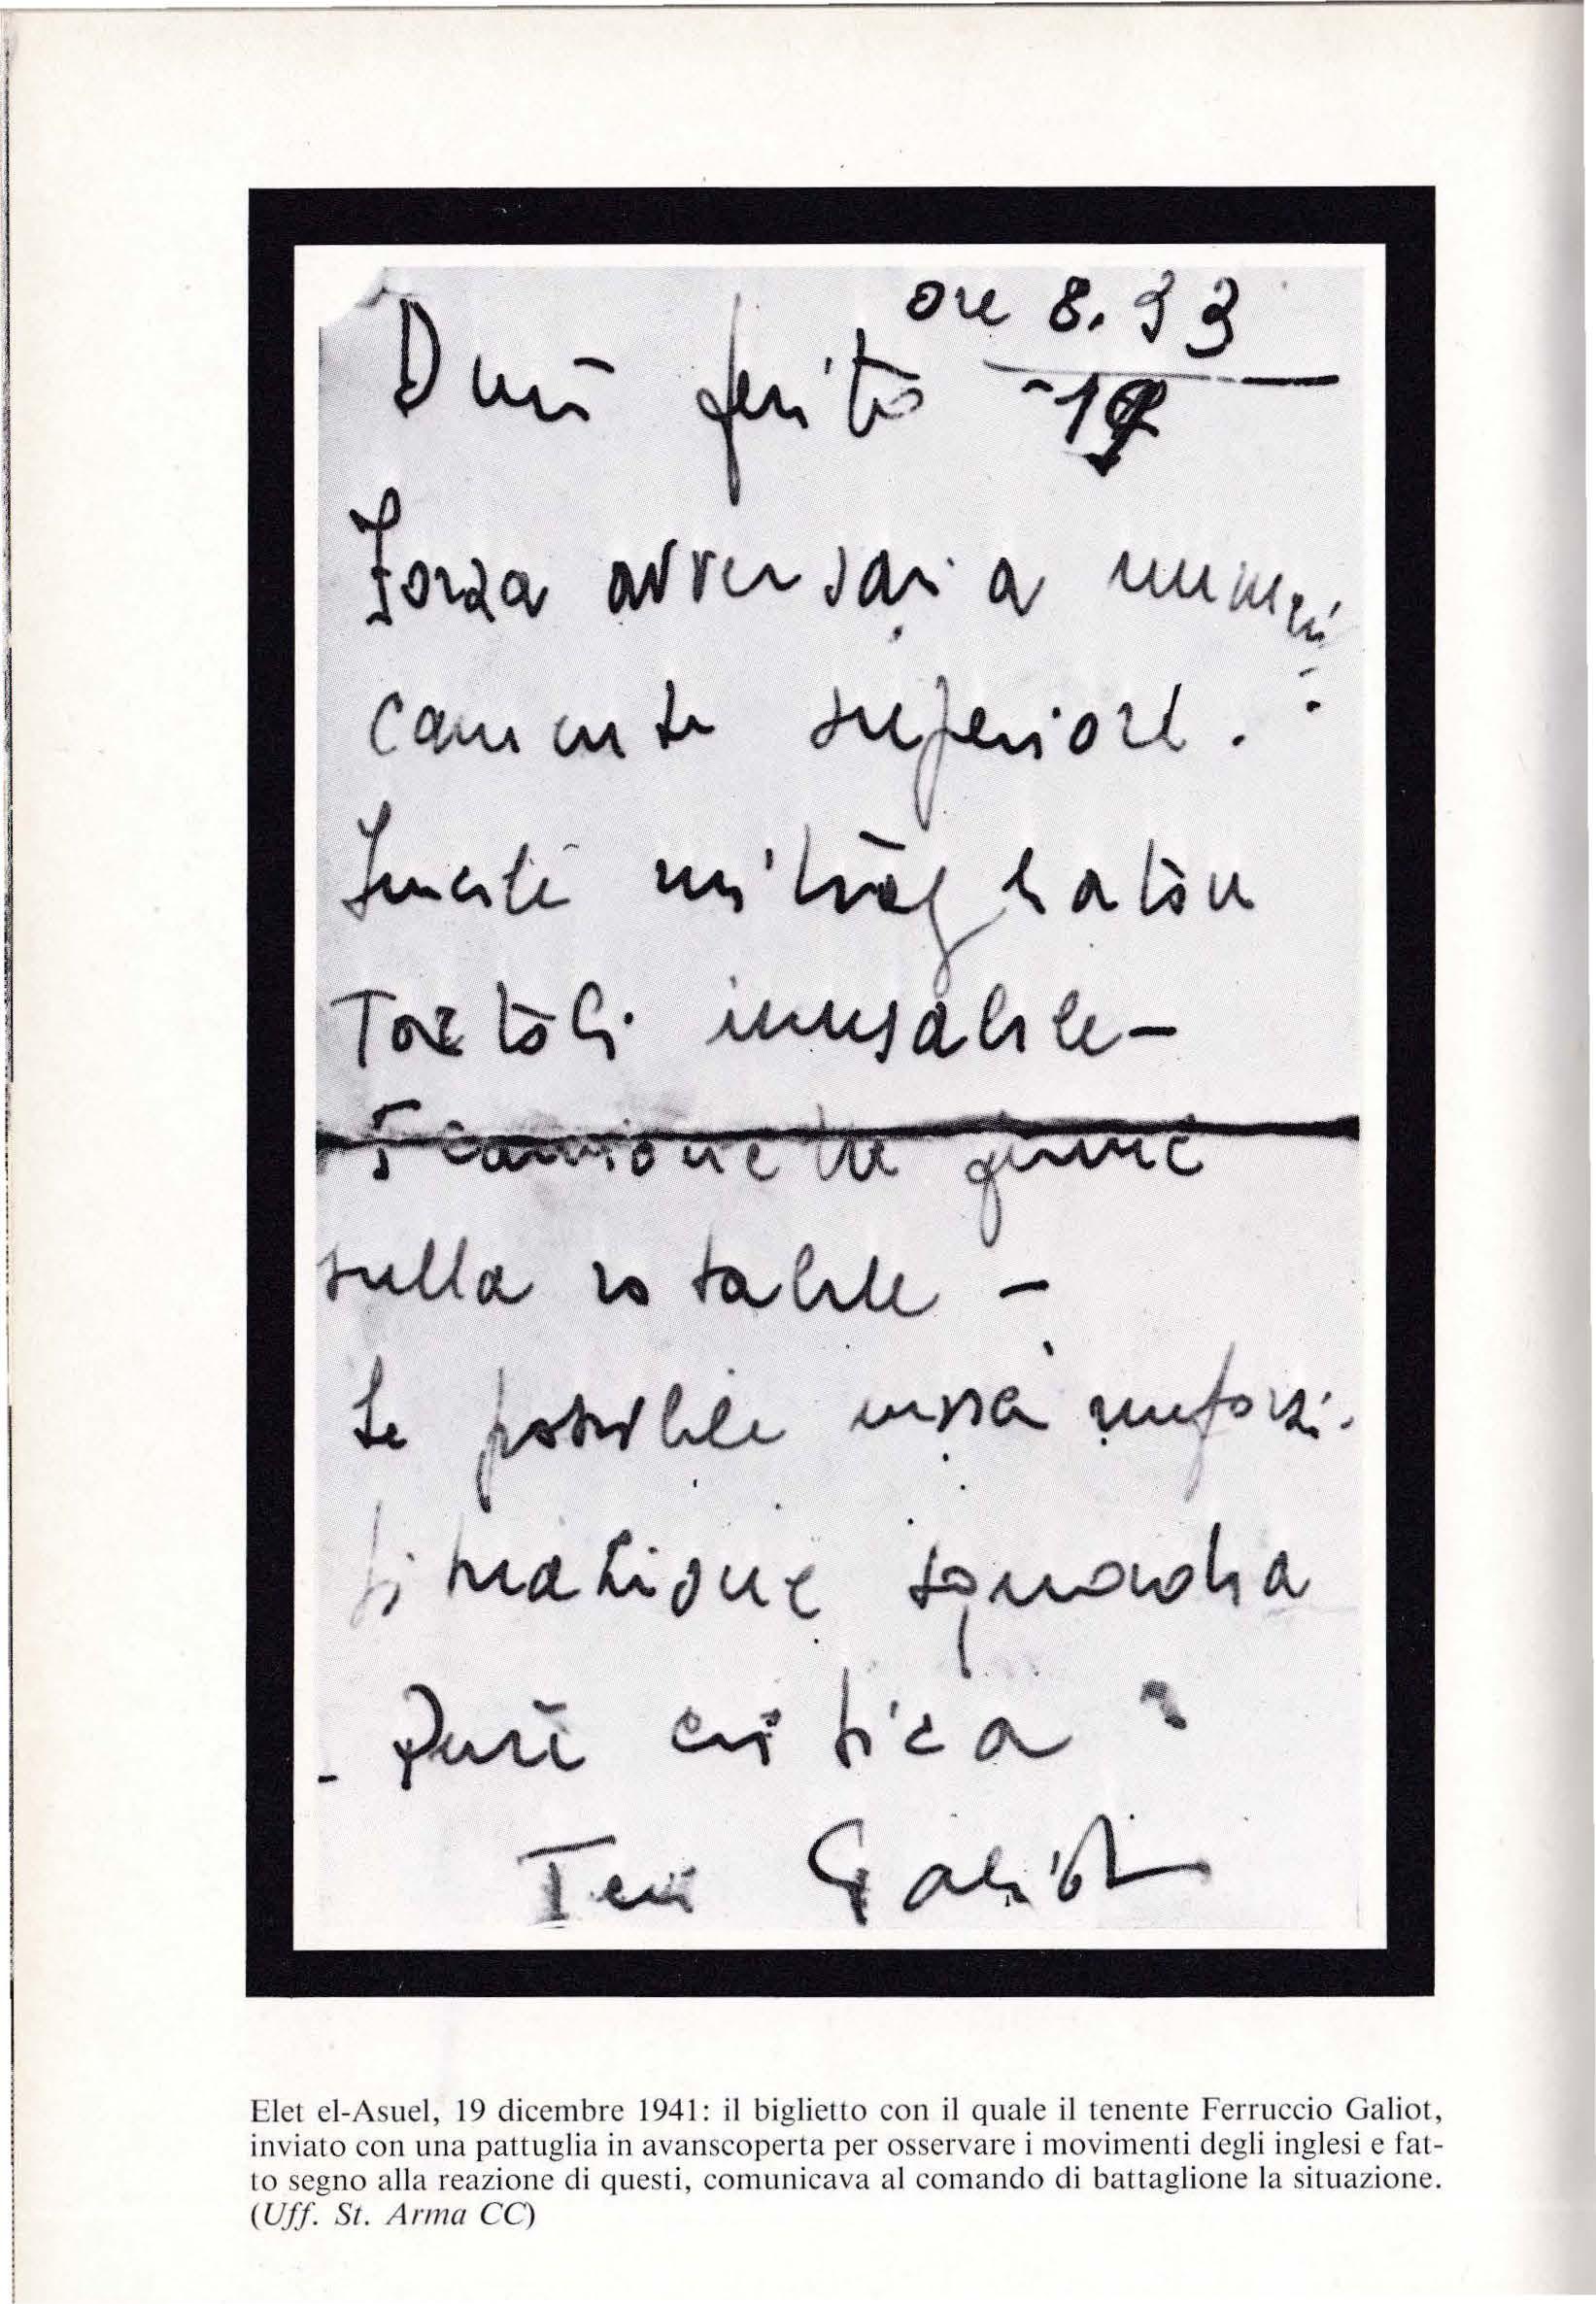 ore 8.33
Duri ferito -19
Forza avversaria numeri
camente superiore.
mitragliatore
Tortoli inusabile-
camionette ferme
sulla rotabile -
Se possibile invia rinforzi.
Situazione squadra
- Duri critica
Ten Galiot
Elet el-Asuel, 19 dicembre 1941: il biglietto con il quale il tenente Ferruccio Galiot,
inviato con una pattuglia in avanscoperta per osservare i movimenti degli inglesi e fat-
to segno alla reazione di questi, comunicava al comando di battaglione la situazione.
(Uff. St. Arma CC)